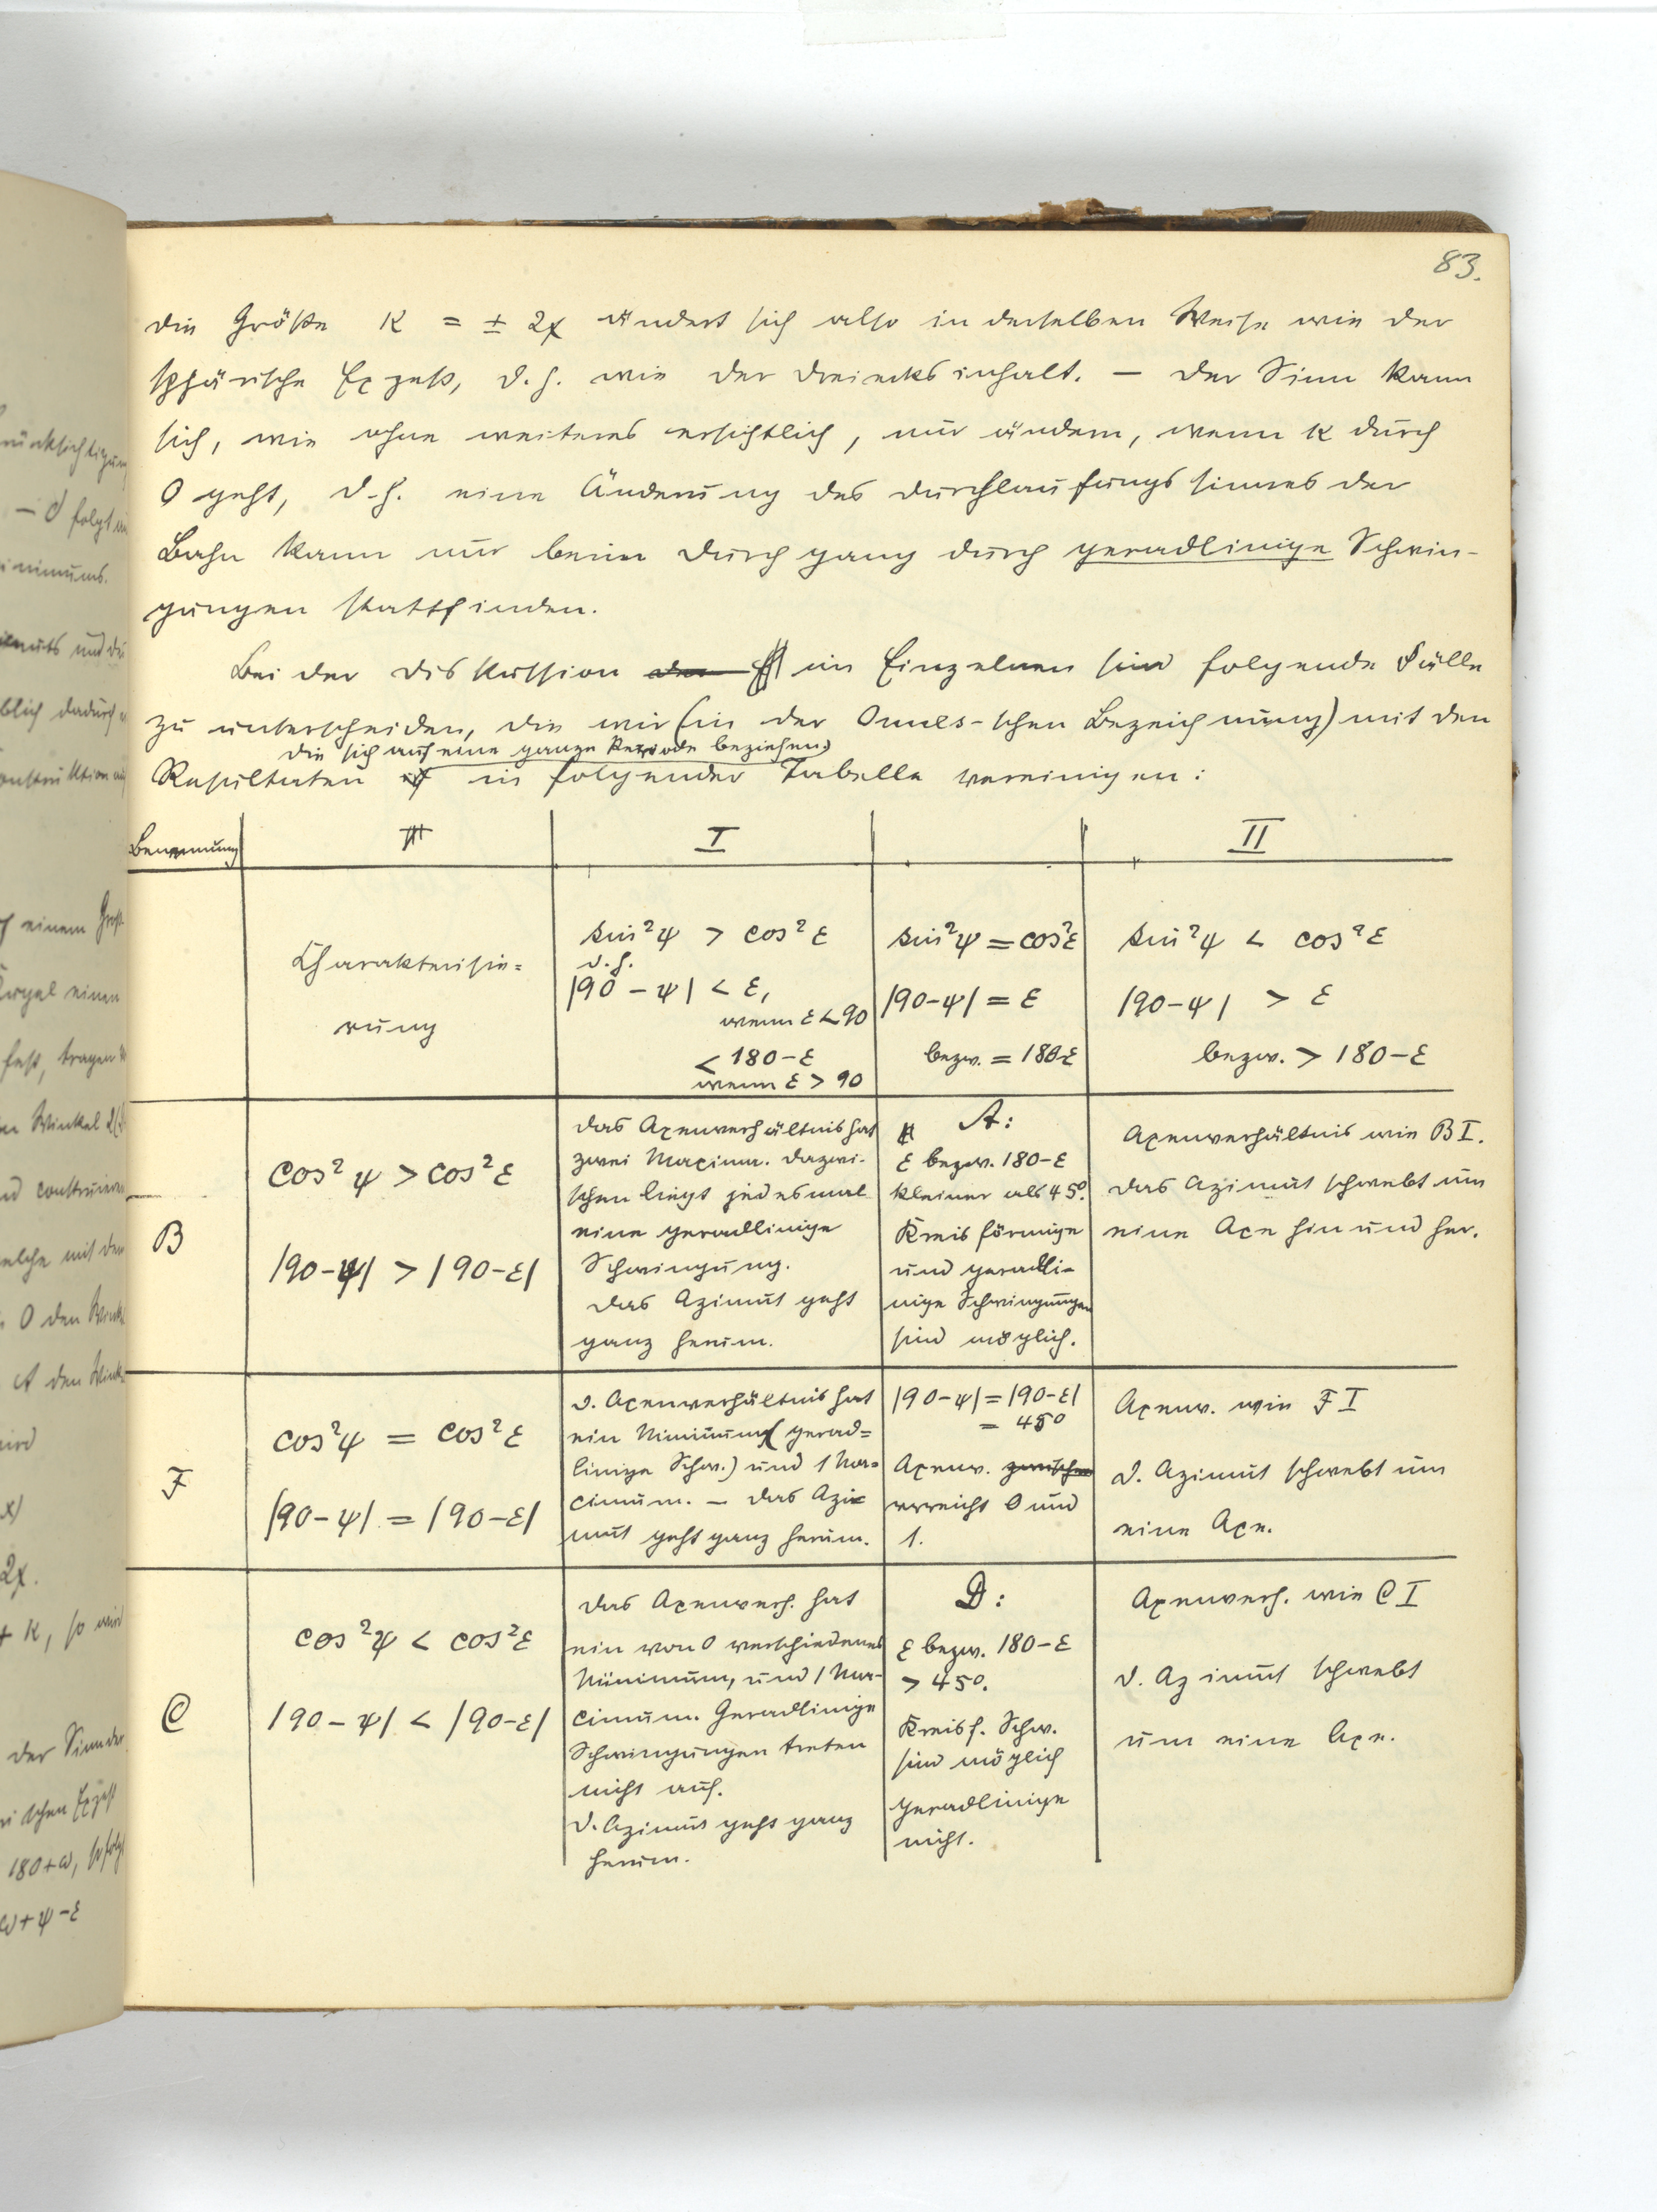 83.
die Größe K = ± 2χ ändert sich also in derselben Weise wie der
sphärische Exzeß, d.h. wie der Dreiecksinhalt. — Der Sinn kann
sich, wie ohne weiteres ersichtlich, nur ändern, wenn K durch
0 geht, d.h. eine Änderung des Durchlaufungssinnes der
Bahn kann nur beim Durchgang durch geradlinige Schwin-
gungen stattfinden.
Bei der Diskussion im Einzelnen sind folgende Fälle
zu unterscheiden, die wir (in der Omnes-schen Bezeichnung) mit den
die sich auf eine ganze Periode beziehen,
Resultaten in folgender Tabelle vereinigen:
Benennung
I
II
Charakterisie=
rung
sin²ψ > cos²ε
d.h.
|90 - ψ| < ε,
wenn ε < 90
< 180 - ε
wenn ε > 90
sin²ψ = cos²ε
|90-ψ| = ε
bezw. = 180-ε
sin²ψ < cos²ε
|90-ψ| > ε
bezw. > 180-ε
B
cos²ψ > cos²ε
|90-ψ| > |90-ε|
Das Axenverhältnis hat
zwei Maxima. Dazwi-
schen liegt jedesmal
eine geradlinige
Schwingung.
Das Azimut geht
ganz herum.
A:
ε bezw. 180-ε
kleiner als 45°.
Kreisförmige
und geradli-
nige Schwingungen
sind möglich.
Axenverhältnis wie B I.
Das Azimut schwebt um
eine Axe hin und her.
F
cos²ψ = cos²ε
|90-ψ| = |90-ε|
D. Axenverhältnis hat
ein Minimum (gerad=
linige Schw.) und 1 Ma=
ximum. — Das Azi=
mut geht ganz herum.
|90-ψ| = |90-ε|
= 45°
Axenv. zwischen
erreicht 0 und
1.
Axenv. wie F I
D. Azimut schwebt um
eine Axe.
C
cos²ψ < cos²ε
|90-ψ| < |90-ε|
Das Axenverh. hat
ein von 0 verschiedenes
Minimum, und 1 Ma-
ximum. Geradlinige
Schwingungen treten
nicht auf.
D. Azimut geht ganz
herum.
D:
ε bezw. 180-ε
> 45°.
Kreisf. Schw.
sind möglich
geradlinige
nicht.
Axenverh. wie C I
D. Azimut schwebt
um eine Axe.